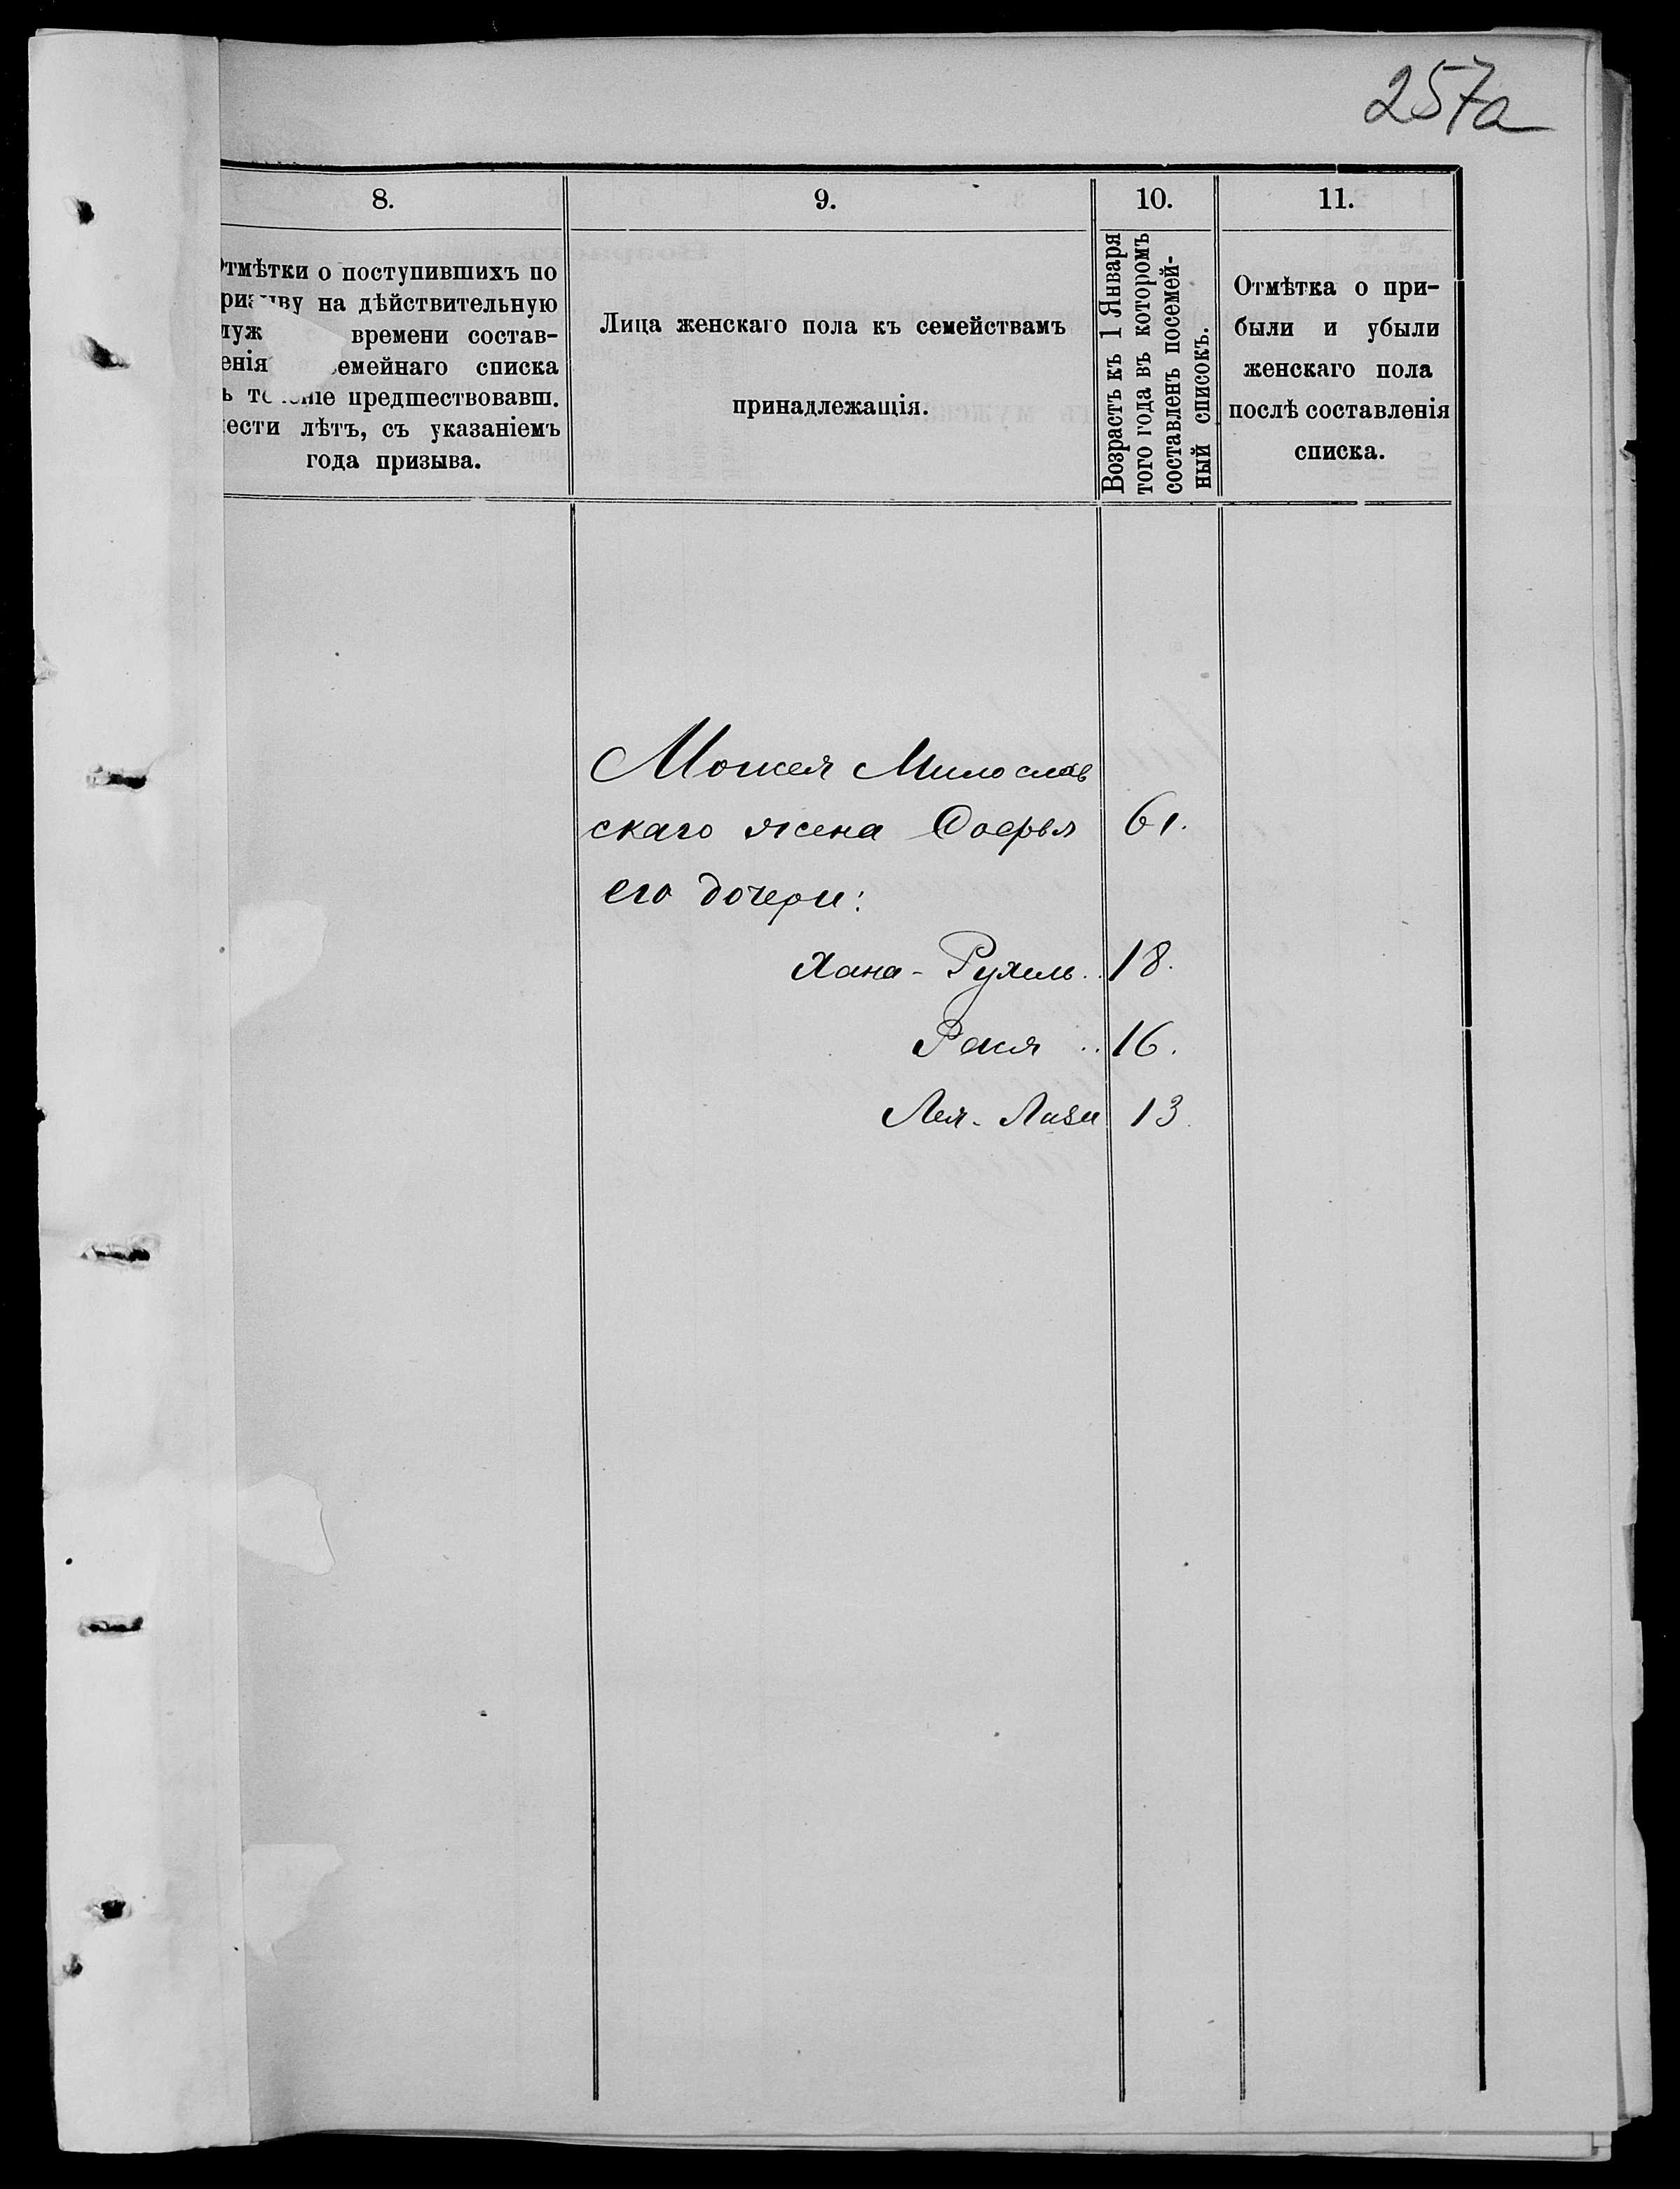 257а
8.
9.
10.
11.
тмѣтки о поступившихъ по
на дѣйствительную
времени состав-
енія емейнаго списка
предшествовавш.
ести лѣтъ, съ указаніемъ
года призыва.
Лица женскаго пола къ семействамъ
принадлежащія.
Возрастъ къ 1 Января
того года въ которомъ
составленъ посемей-
ный списокъ.
Отмѣтка о при-
были и убыли
женскаго пола
послѣ составленія
списка.
Мовшея Милослав
скаго жена Софья 61.
его дочери:
Хана - Рухель .. 18.
Рася .. 16.
Лея - Лизи 13.